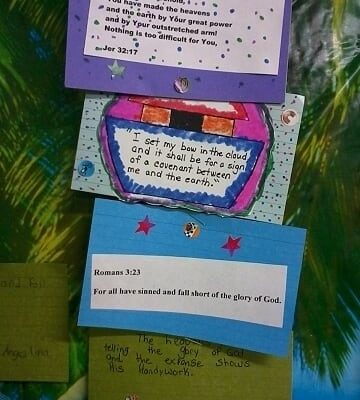 You have made the heavens
and the earth by Your great power
and by Your outstretched arm!
Nothing is too difficult for You,
Jer 32:17
"I set my bow in the cloud
and it shall be for a sign
of a covenant between
me and the earth."
Romans 3:23
For all have sinned and fall short of the glory of God.
The
telling the glory of God
and the expanse shows
His Handywork.
and
Angelina